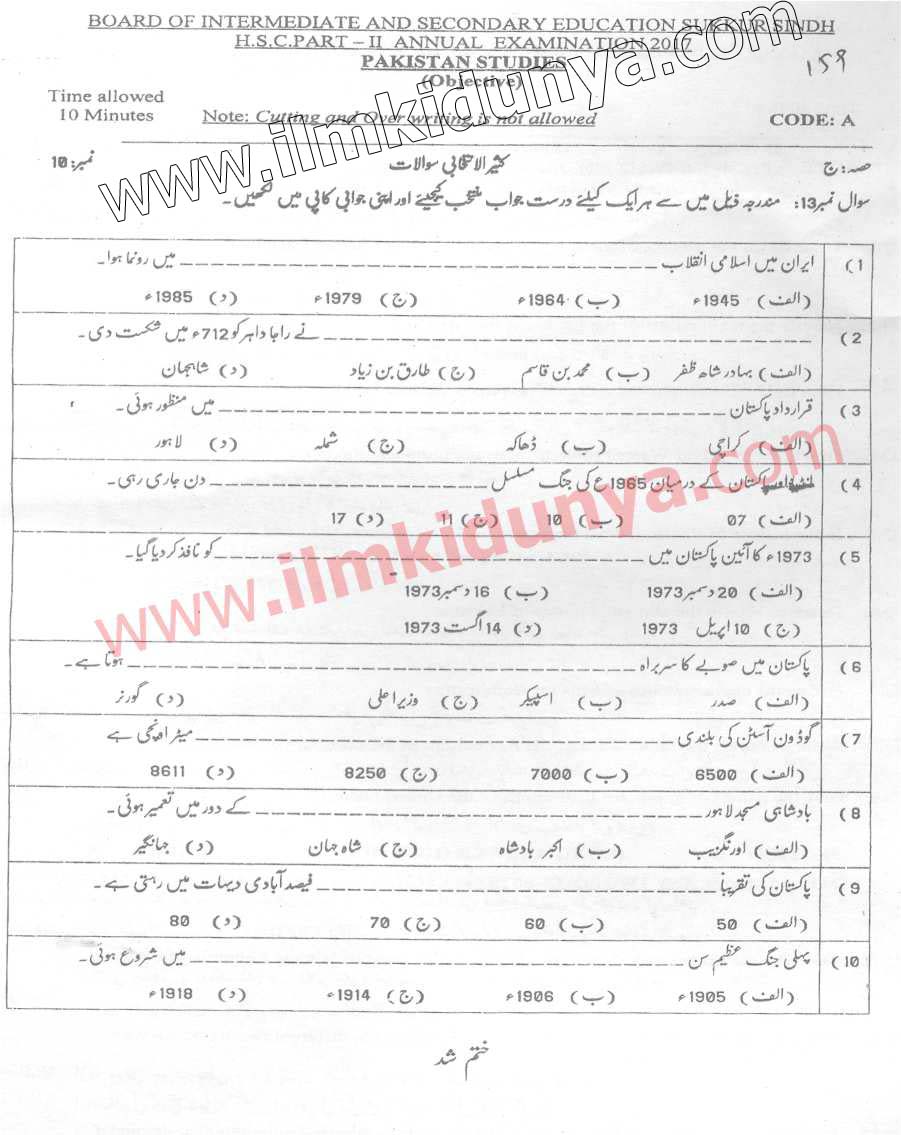 BOARD OF INTERMEDIATE AND SECONDARY EDUCATION SUKKUR SINDH
H.S.C.PART – II ANNUAL EXAMINATION 2017
PAKISTAN STUDIES
(Objective)
159
Time allowed
10 Minutes
Note: Cutting and Over writing is not allowed
CODE: A
www.ilmkidunya.com
حصہ: ج کثیر الانتخابی سوالات نمبر: 10
سوال نمبر13: مندرجہ ذیل میں سے ہر ایک کیلئے درست جواب منتخب کیجیئے اور اپنی جوابی کاپی میں لکھیں۔
(1 ایران میں اسلامی انقلاب ____________ میں رونما ہوا۔
(الف) 1945ء (ب) 1964ء (ج) 1979ء (د) 1985ء
(2 ____________ نے راجا داہر کو 712ء میں شکست دی۔
(الف) بہادر شاہ ظفر (ب) محمد بن قاسم (ج) طارق بن زیاد (د) شاہجہان
(3 قرارداد پاکستان ____________ میں منظور ہوئی۔
(الف) کراچی (ب) ڈھاکہ (ج) شملہ (د) لاہور
(4 پاکستان کے درمیان 1965ع کی جنگ مسلسل ____________ دن جاری رہی۔
(الف) 07 (ب) 10 (ج) 11 (د) 17
(5 1973ء کا آئین پاکستان میں ____________ کو نافذ کر دیا گیا۔
(الف) 20 دسمبر 1973 (ب) 16 دسمبر 1973
(ج) 10 اپریل 1973 (د) 14 اگست 1973
www.ilmkidunya.com
(6 پاکستان میں صوبے کا سربراہ ____________ ہوتا ہے۔
(الف) صدر (ب) اسپیکر (ج) وزیر اعلی (د) گورنر
(7 گوڈون آسٹن کی بلندی ____________ میٹر اونچی ہے
(الف) 6500 (ب) 7000 (ج) 8250 (د) 8611
(8 بادشاہی مسجد لاہور ____________ کے دور میں تعمیر ہوئی۔
(الف) اورنگزیب (ب) اکبر بادشاہ (ج) شاہ جہان (د) جہانگیر
(9 پاکستان کی تقریباً ____________ فیصد آبادی دیہات میں رہتی ہے۔
(الف) 50 (ب) 60 (ج) 70 (د) 80
(10 پہلی جنگ عظیم سن ____________ میں شروع ہوئی۔
(الف) 1905ء (ب) 1906ء (ج) 1914ء (د) 1918ء
ختم شد